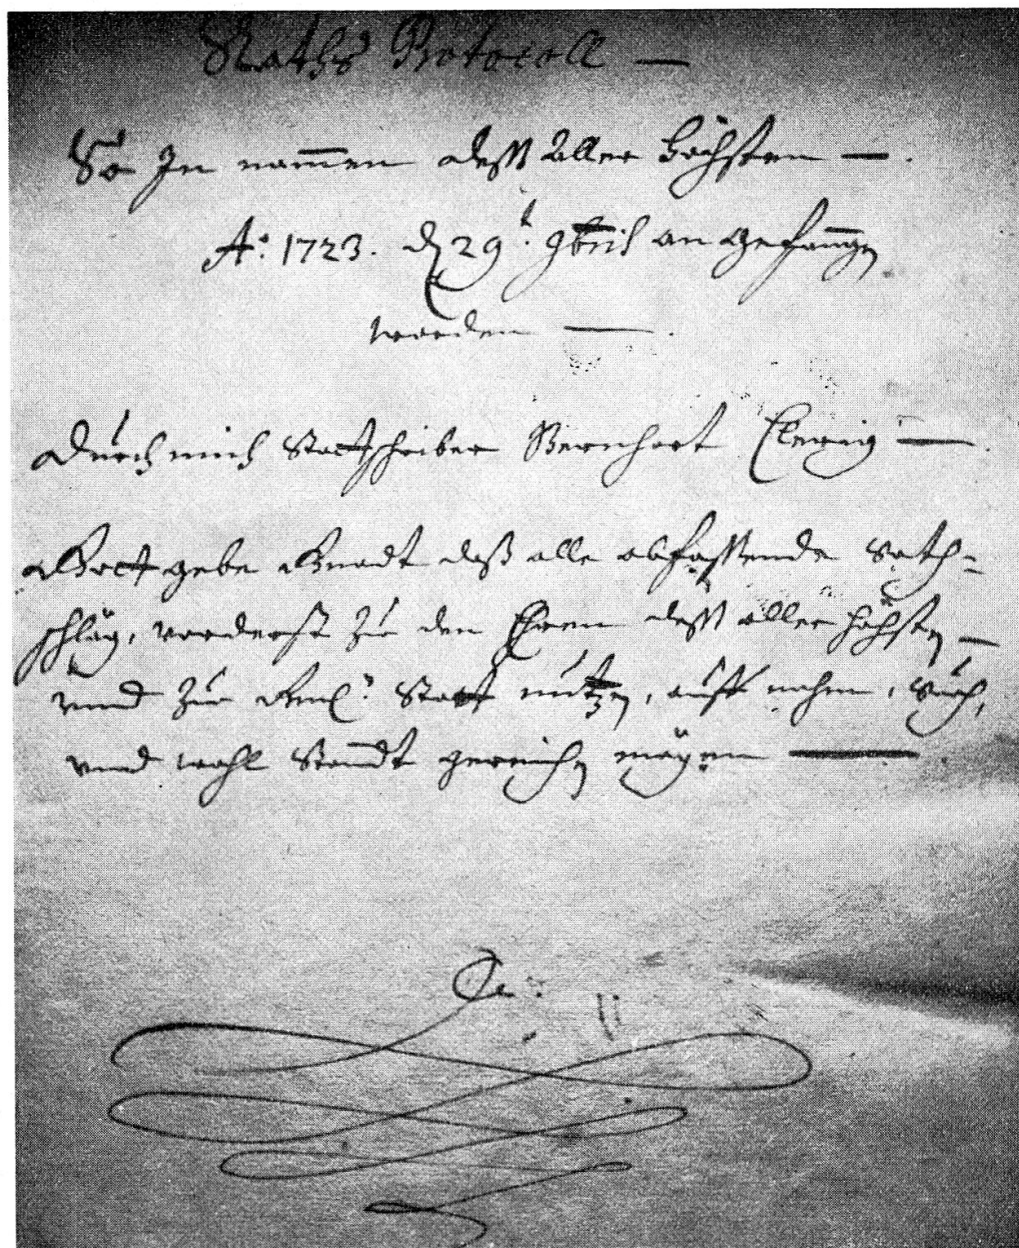 Raths Protocoll —
So In nam̅en dess Aller Höchsten —.
Aº. 1723. d 29t. 9bris an gefang̅en
worden —.
durch mich Statt schriber Bernhart —
Gott gebe Gnadt daß alle abfassende Rath=
schläg, vorderst zu den Ehren dess aller höchsten —
unnd zu Statt nutzen, auff nahm, Ruh,
unnd wohl Standt gereichen mögen —